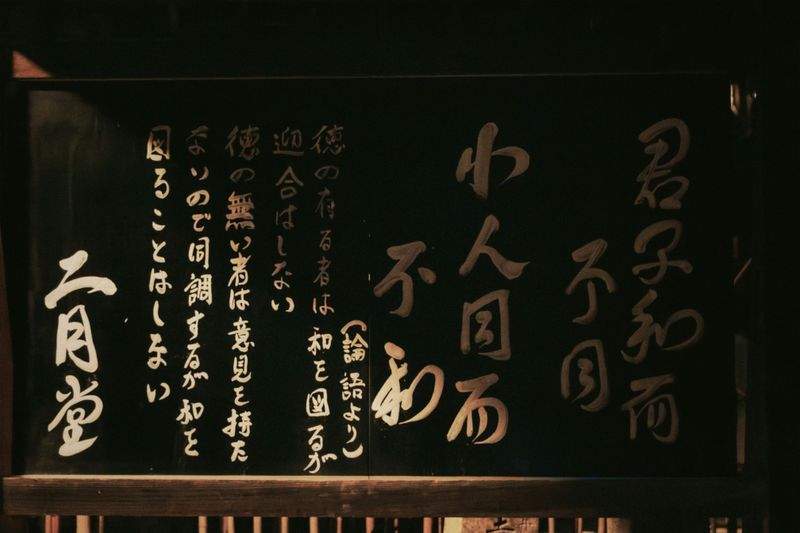 君子和而
不同
小人同而
不和
(論語より)
徳の有る者は和を図るが
迎合はしない
徳の無い者は意見を持た
ないので同調するが和を
図ることはしない
二月堂